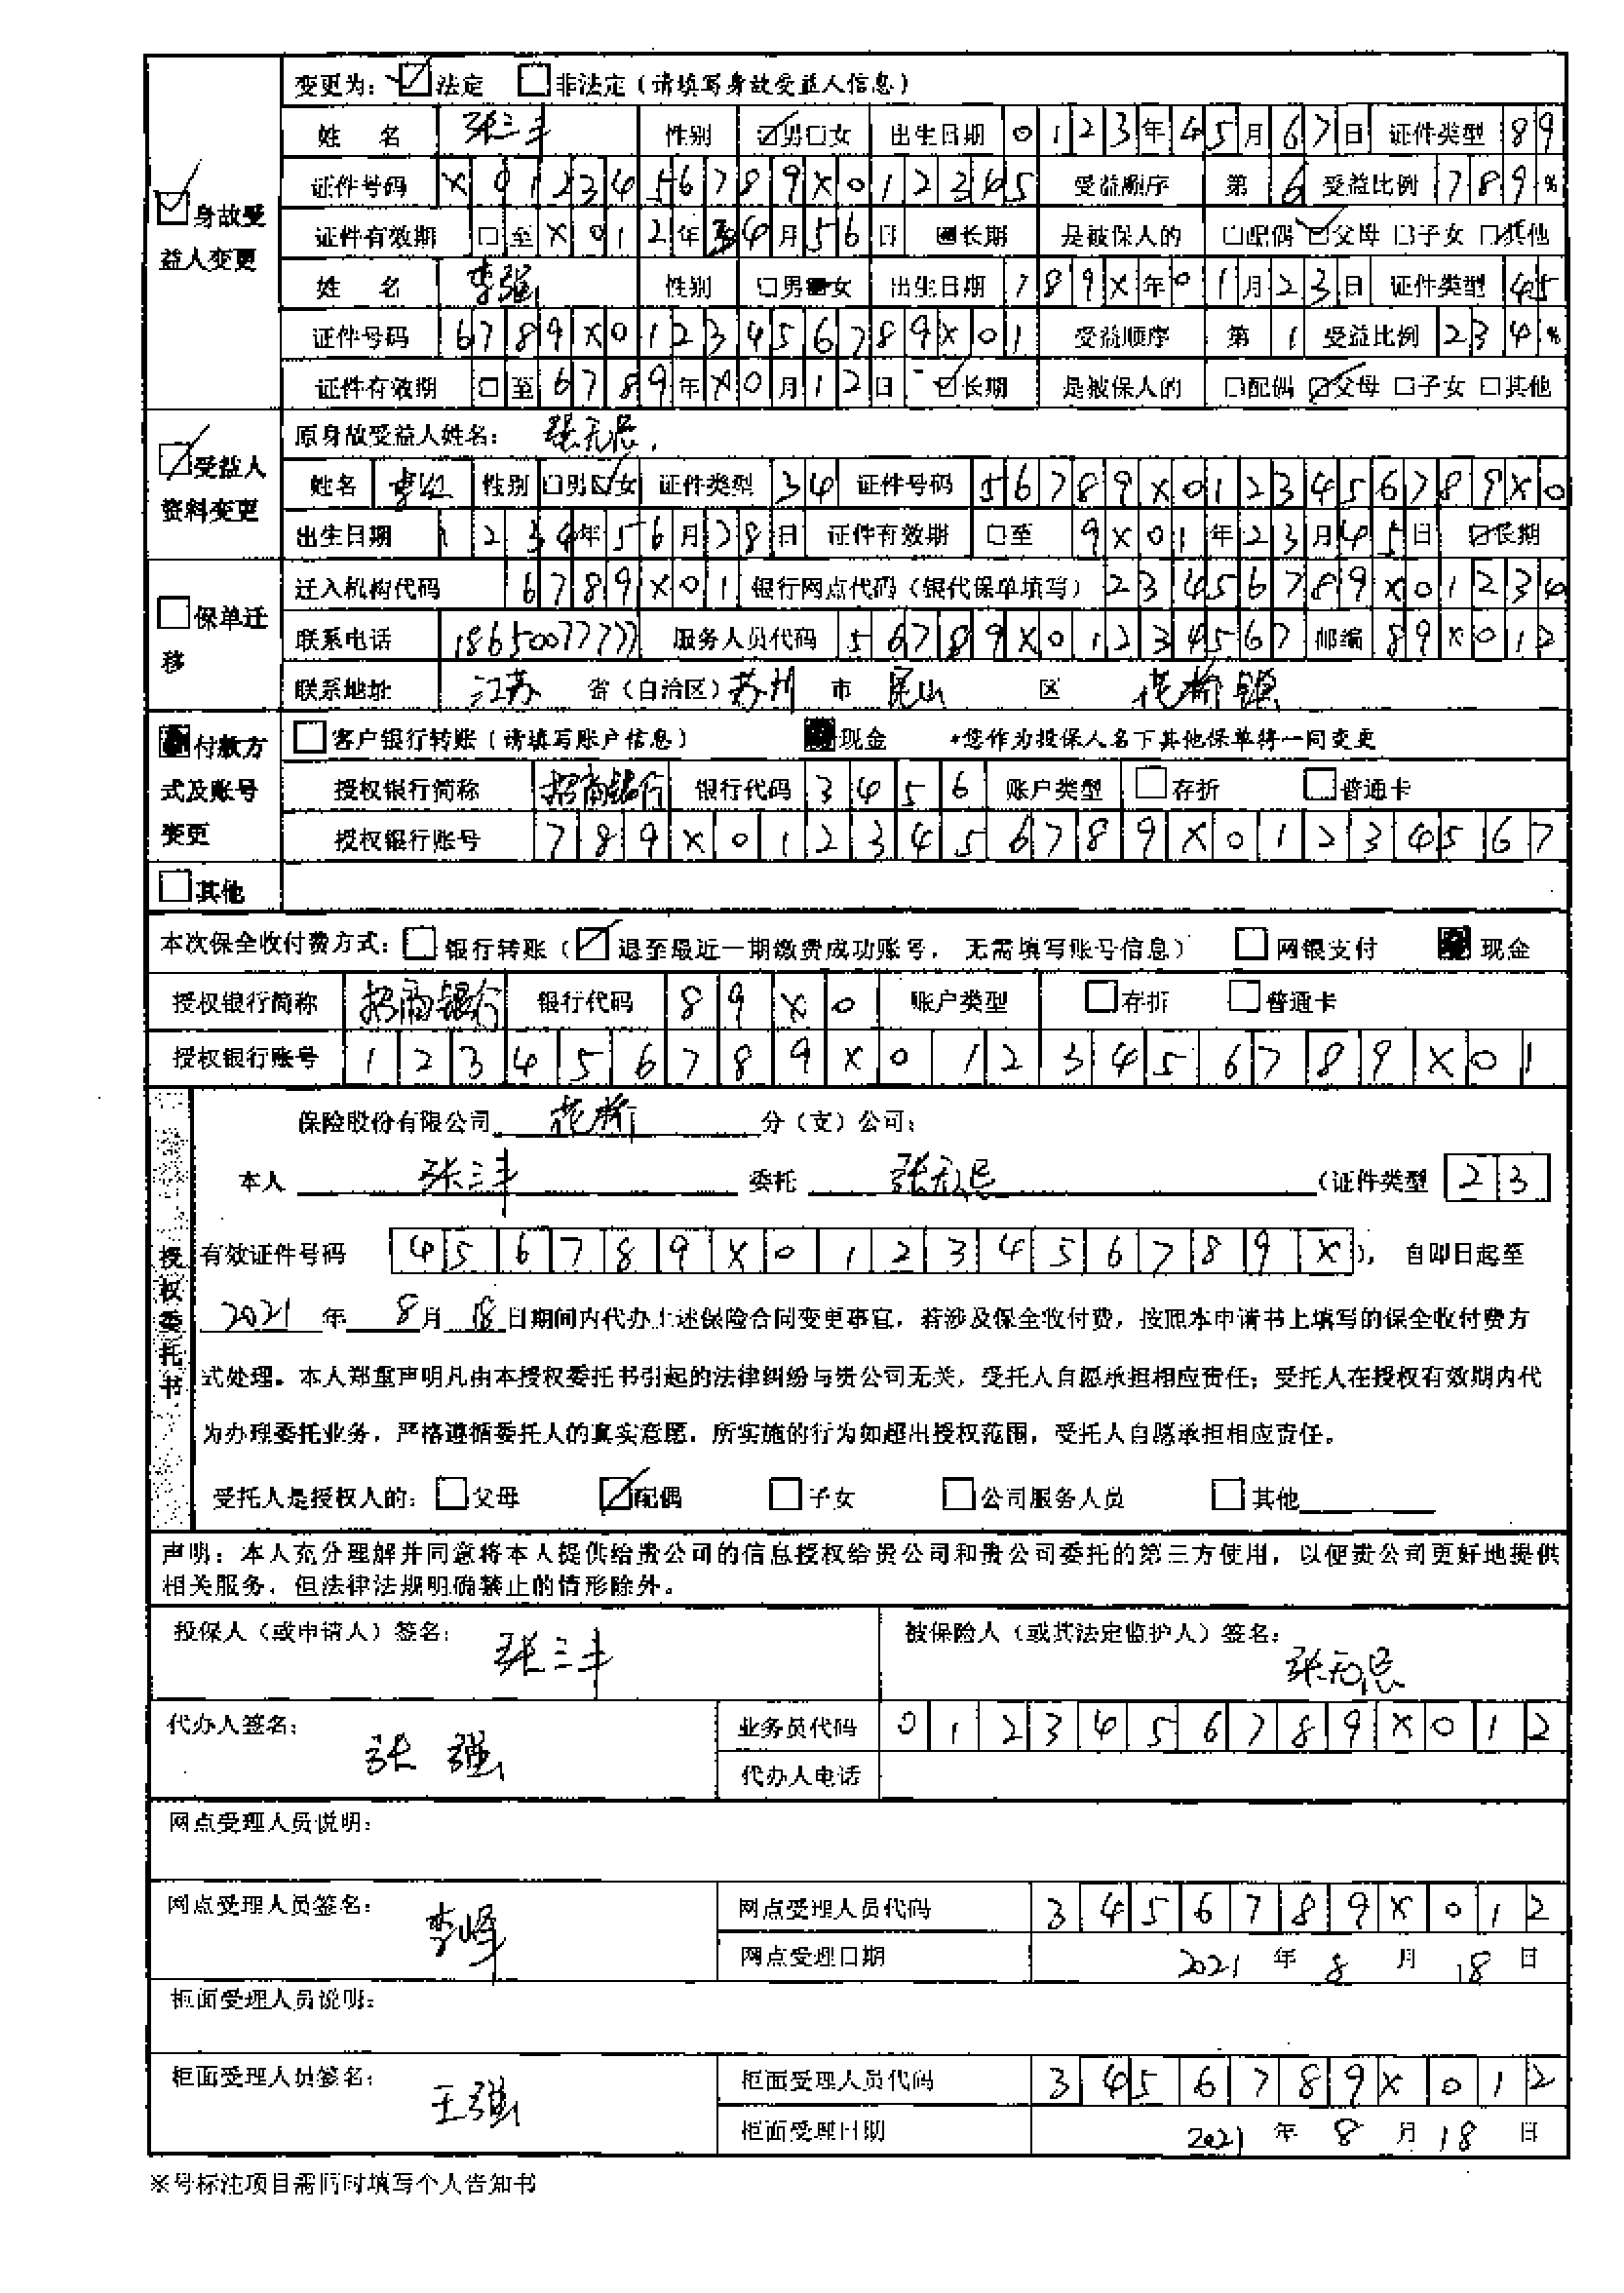 变更为： ☑法定 □非法定（请填写身故受益人信息）
姓 名 张三丰 性别 ☑男□女 出生日期 0123年45月67日 证件类型 89
☑身故受益人变更
证件号码 X0123456789X012345 受益顺序 第6 受益比例 789%
证件有效期 □至 X012年34月56日 ■长期 是被保人的 □配偶 ☑父母 □子女 □其他
姓 名 李强 性别 □男■女 出生日期 789X年01月23日 证件类型 45
证件号码 6789X0123456789X01 受益顺序 第1 受益比例 234%
证件有效期 □至 6789年X0月12日 ☑长期 是被保人的 □配偶 ☑父母 □子女 □其他
☑受益人资料变更
原身故受益人姓名： 张无忌
姓名 性别 □男☑女 证件类型 34 证件号码 56789X0123456789X0
出生日期 1234年56月78日 证件有效期 □至 9X01年23月45日 ☑长期
□保单迁移
迁入机构代码 6789X01 银行网点代码（银代保单填写） 23456789X01234
联系电话 18650077777 服务人员代码 56789X01234567 邮编 89X012
联系地址 江苏 省（自治区） 苏州 市 昆山 区 花桥镇
■付款方式及账号变更
□客户银行转账（请填写账户信息） ■现金 *您作为投保人名下其他保单将一同变更
授权银行简称 招商银行 银行代码 3456 账户类型 □存折 □普通卡
授权银行账号 789X0123456789X01234567
□其他
本次保全收付费方式： □银行转账（☑退至最近一期缴费成功账号，无需填写账号信息） □网银支付 ■现金
授权银行简称 招商银行 银行代码 89X0 账户类型 □存折 □普通卡
授权银行账号 123456789X0123456789X01
授权委托书
保险股份有限公司 花桥 分（支）公司：
本人 张三丰 委托 张无忌 （证件类型 23
有效证件号码 456789X0123456789X ），自即日起至
2021年 8月 18日期间内代办上述保险合同变更事宜，若涉及保全收付费，按照本申请书上填写的保全收付费方
式处理。本人郑重声明凡由本授权委托书引起的法律纠纷与贵公司无关，受托人自愿承担相应责任；受托人在授权有效期内代
为办理委托业务，严格遵循委托人的真实意愿，所实施的行为如超出授权范围，受托人自愿承担相应责任。
受托人是授权人的： □父母 ☑配偶 □子女 □公司服务人员 □其他
声明：本人充分理解并同意将本人提供给贵公司的信息授权给贵公司和贵公司委托的第三方使用，以便贵公司更好地提供
相关服务，但法律法规明确禁止的情形除外。
投保人（或申请人）签名： 张三丰 被保险人（或其法定监护人）签名： 张无忌
代办人签名： 张强 业务员代码 0123456789X012
代办人电话
网点受理人员说明：
网点受理人员签名： 李峰 网点受理人员代码 3456789X012
网点受理日期 2021年 8月 18日
柜面受理人员说明：
柜面受理人员签名： 王强 柜面受理人员代码 3456789X012
柜面受理日期 2021年 8月 18日
※号标注项目需同时填写个人告知书